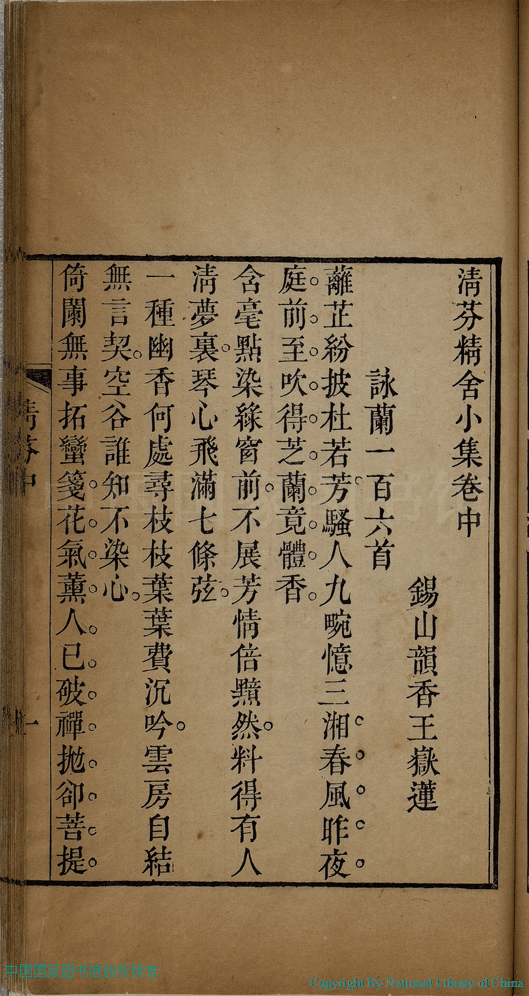 清芬精舍小集卷中
錫山韻香王嶽蓮
詠蘭一百六首
蘺芷紛披杜若芳騷人九畹憶三湘春風昨夜
庭前至吹得芝蘭竟體香
含毫點染綠窗前不展芳情倍黯然料得有人
清夢裏琴心飛滿七條弦
一種幽香何處尋枝枝葉葉費沉吟雲房自結
無言契空谷誰知不染心
倚闌無事拓蠻箋花氣薰人已破禪拋卻菩提
清芬中
一
Copyright By National Library of China